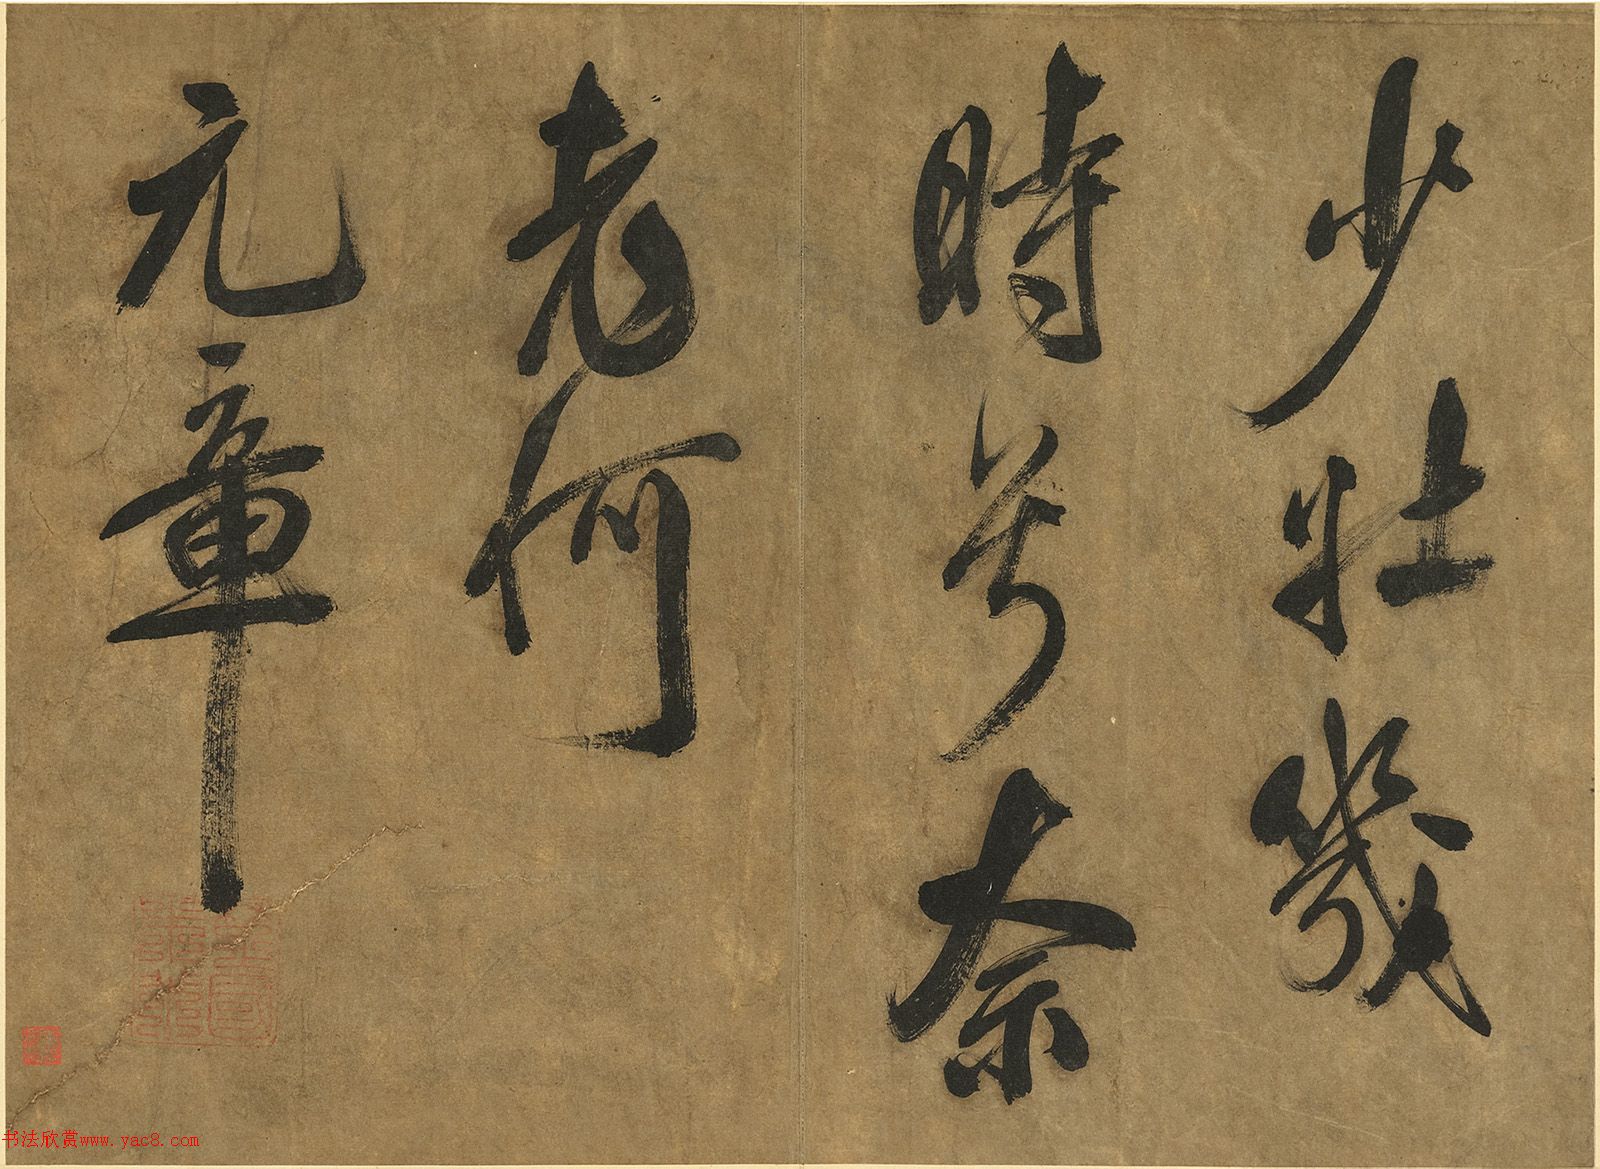 少壯幾
時兮奈
老何
元章
书法欣赏www.yac8.com